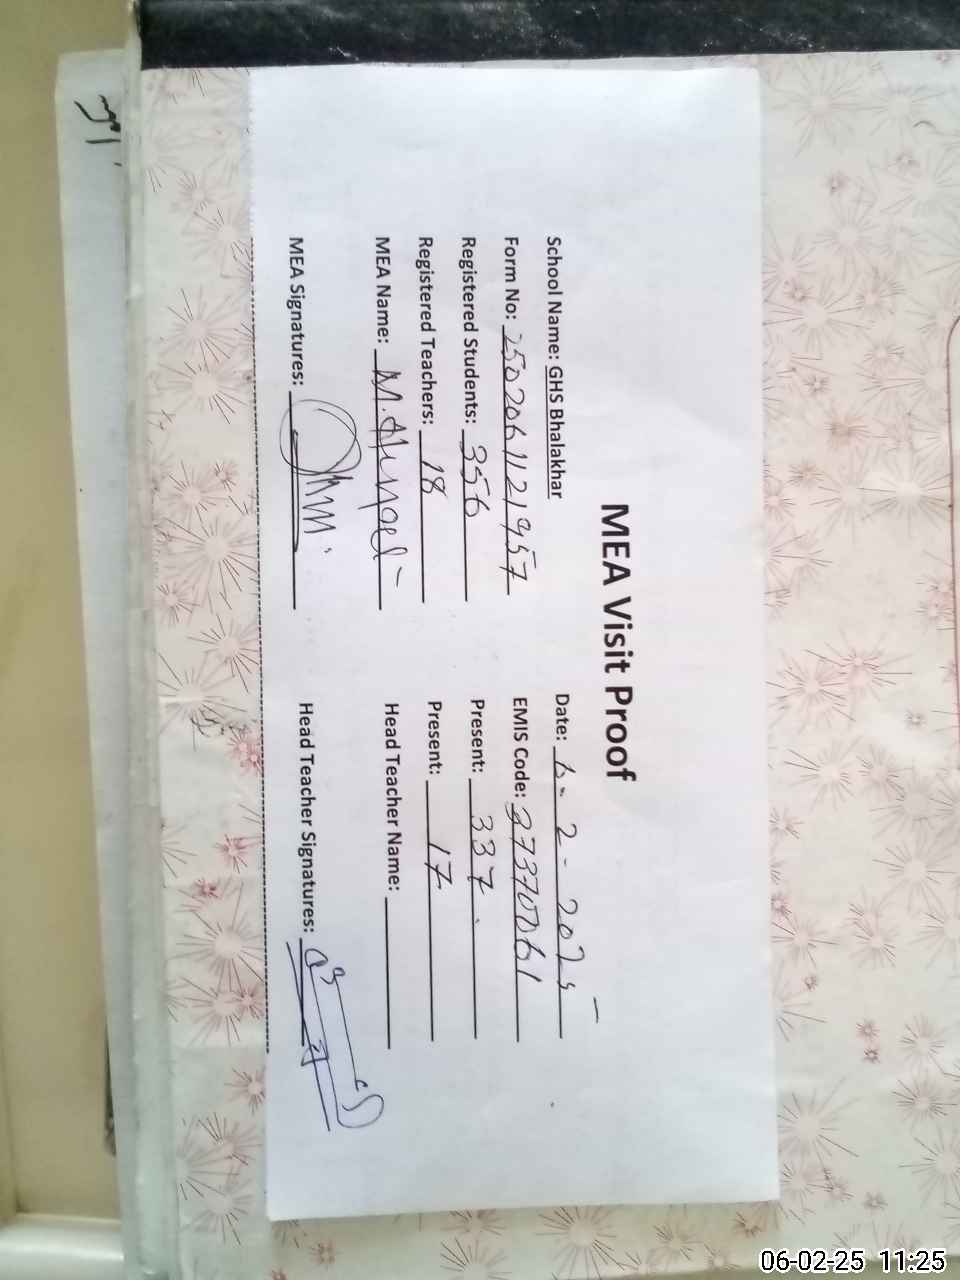 MEA Visit Proof
School Name: GHS Bhalakhar Date: 6-2-2025
Form No: 2502061121957 EMIS Code: 37370061
Registered Students: 356 Present: 337
Registered Teachers: 18 Present: 17
MEA Name: M.
Head Teacher Name:
MEA Signatures: Head Teacher Signatures:
06-02-25 11:25